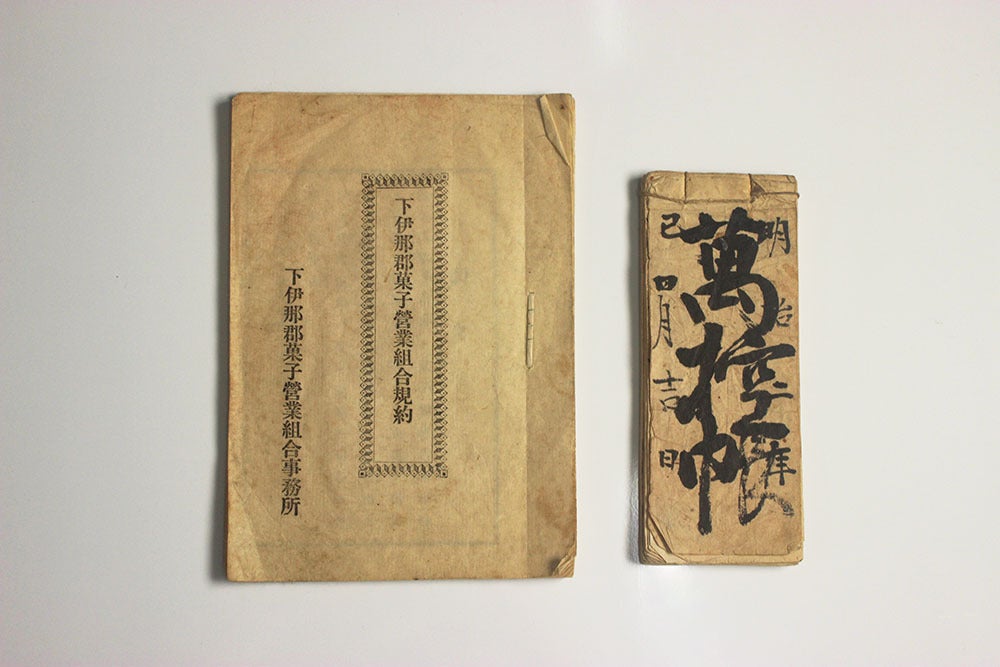 下伊那郡菓子營業組合規約
下伊那郡菓子營業組合事務所
明治二年
萬控帳
巳四月吉日